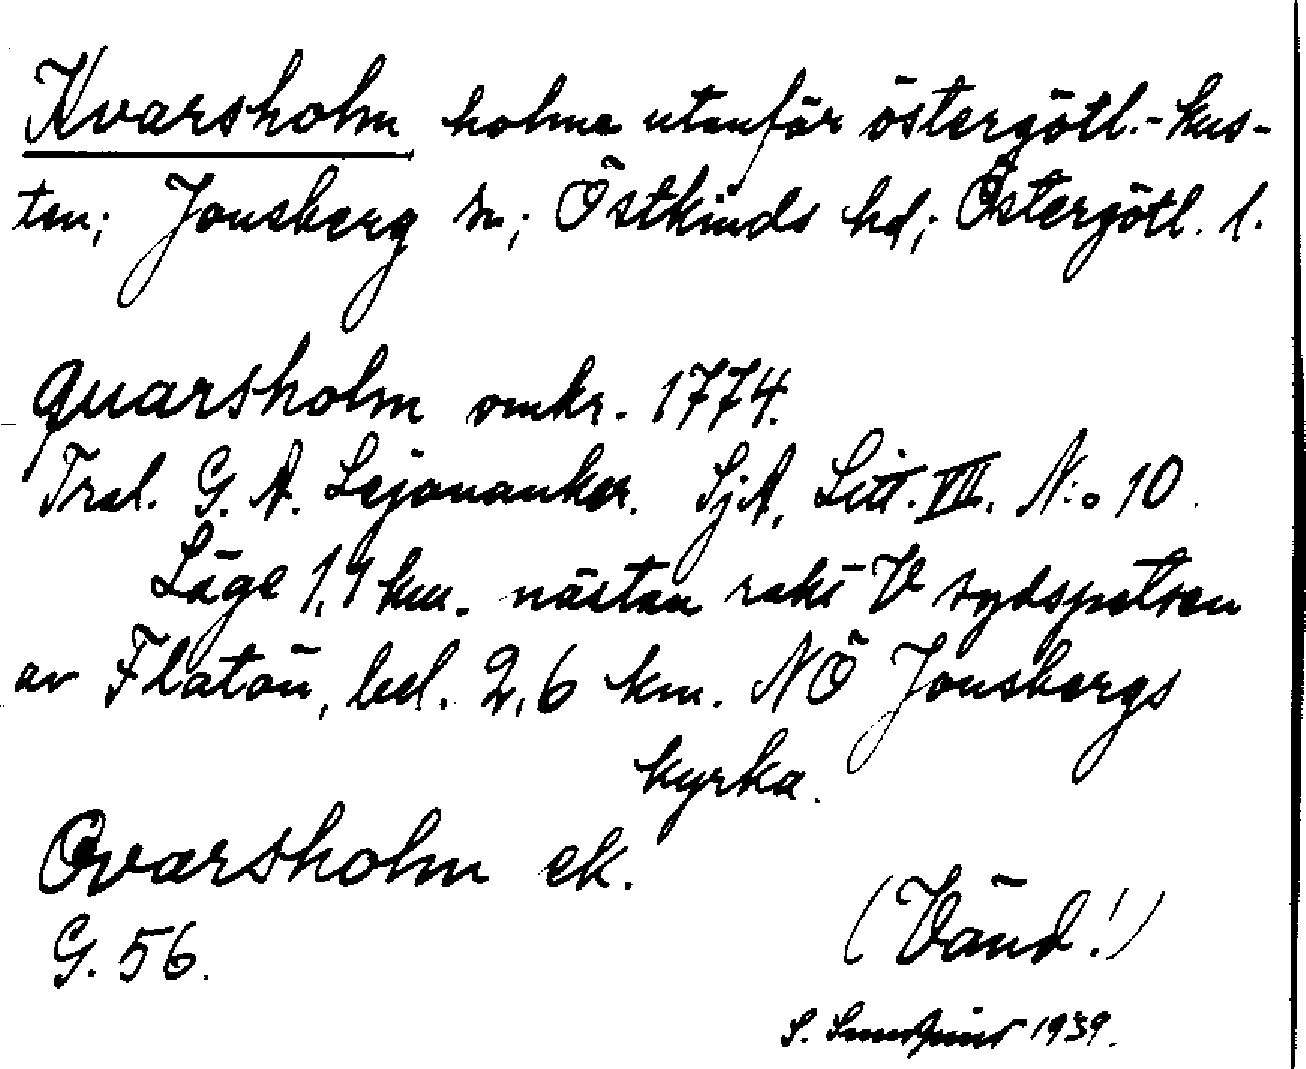 Kvarsholm holme utanför östergötl.-kus-
ten; Jonsberg sn; Östkinds hd; Östergötl. l.
Quarsholm omkr. 1774.
Trol. G. A. Lejonanker. SjA, Litt. VII. N:o 10.
Läge 1,1 km. nästan rakt V sydspetsen
av Flatön, bel. 2,6 km. NÖ Jonsbergs
kyrka.
Qvarsholm ek.
G. 56.
(Vänd!)
S. 1939.